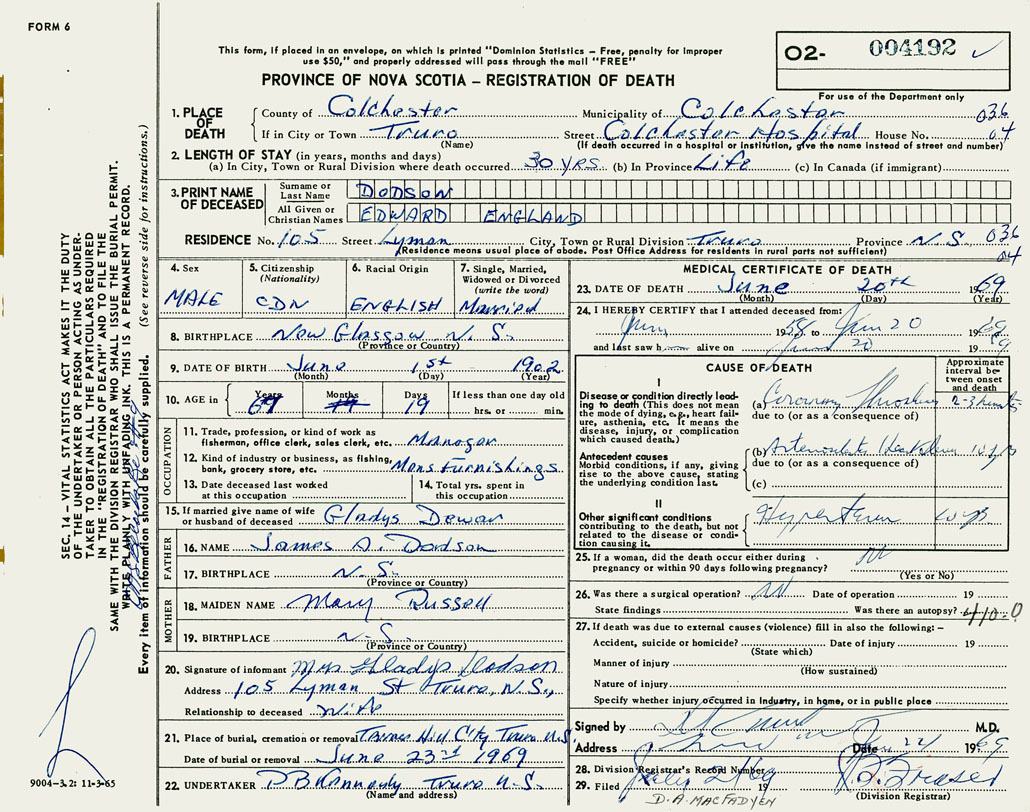 FORM 6
This form, if placed in an envelope, on which is printed "Dominion Statistics – Free, penalty for improper
use $50," and properly addressed will pass through the mail "FREE"
PROVINCE OF NOVA SCOTIA – REGISTRATION OF DEATH
O2- 004192 ✓
For use of the Department only
1. PLACE OF DEATH
County of Colchester Municipality of Colchester 036
If in City or Town Truro Street Colchester Hospital House No. 04
(Name) (If death occurred in a hospital or institution, give the name instead of street and number)
2. LENGTH OF STAY (in years, months and days)
(a) In City, Town or Rural Division where death occurred 30 yrs (b) In Province Life (c) In Canada (if immigrant)
3. PRINT NAME OF DECEASED
Surname or Last Name DODSON
All Given or Christian Names EDWARD ENGLAND
RESIDENCE No. 105 Street Lyman City, Town or Rural Division Truro Province N.S. 036
(Residence means usual place of abode. Post Office Address for residents in rural parts not sufficient) 04
4. Sex
MALE
5. Citizenship (Nationality)
CDN
6. Racial Origin
ENGLISH
7. Single, Married, Widowed or Divorced (write the word)
Married
8. BIRTHPLACE New Glasgow N.S.
(Province or Country)
9. DATE OF BIRTH June 1st 1902
(Month) (Day) (Year)
10. AGE in Years 67 Months Days 19 If less than one day old
hrs. or min.
OCCUPATION
11. Trade, profession, or kind of work as
fisherman, office clerk, sales clerk, etc. Manager
12. Kind of industry or business, as fishing,
bank, grocery store, etc. Mens Furnishings
13. Date deceased last worked
at this occupation
14. Total yrs. spent in
this occupation
15. If married give name of wife
or husband of deceased Gladys Dewar
FATHER
16. NAME James D. Dodson
17. BIRTHPLACE N.S.
(Province or Country)
MOTHER
18. MAIDEN NAME Mary Russell
19. BIRTHPLACE N.S.
(Province or Country)
20. Signature of informant Mrs Gladys Dodson
Address 105 Lyman St Truro, N.S.,
Relationship to deceased Wife
21. Place of burial, cremation or removal City Truro N.S.
Date of burial or removal June 23rd 1969
22. UNDERTAKER Truro N.S.
(Name and address)
MEDICAL CERTIFICATE OF DEATH
23. DATE OF DEATH June 20th 1969
(Month) (Day) (Year)
24. I HEREBY CERTIFY that I attended deceased from:
1958 to June 20 1969
and last saw h alive on June 20 1969
CAUSE OF DEATH
Approximate interval between onset and death
I
Disease or condition directly leading
to death (This does not
mean the mode of dying, e.g., heart failure,
asthenia, etc. It means the
disease, injury, or complication
which caused death.)
(a) Coronary Thrombosis
due to (or as a consequence of)
Antecedent causes
Morbid conditions, if any, giving
rise to the above cause, stating
the underlying condition last.
(b)
due to (or as a consequence of)
(c)
II
Other significant conditions
contributing to the death, but not
related to the disease or condition
causing it.
25. If a woman, did the death occur either during
pregnancy or within 90 days following pregnancy?
(Yes or No)
26. Was there a surgical operation? Date of operation 19
State findings Was there an autopsy?
410-0
27. If death was due to external causes (violence) fill in also the following:–
Accident, suicide or homicide? Date of injury 19
(State which)
Manner of injury
(How sustained)
Nature of injury
Specify whether injury occurred in Industry, in home, or in public place
Signed by M.D.
Address Truro Date 1969
28. Division Registrar's Record Number
29. Filed 19
(Division Registrar)
D. A. MACFADYEN
SEC. 14 – VITAL STATISTICS ACT MAKES IT THE DUTY
OF THE UNDERTAKER OR PERSON ACTING AS UNDER-
TAKER TO OBTAIN ALL THE PARTICULARS REQUIRED
IN THE "REGISTRATION OF DEATH" AND TO FILE THE
SAME WITH THE DIVISION REGISTRAR WHO SHALL ISSUE THE BURIAL PERMIT.
WRITE PLAINLY WITH UNFADING INK. THIS IS A PERMANENT RECORD.
Every item of information should be carefully supplied. (See reverse side for instructions.)
9004–3.2: 11-3-65